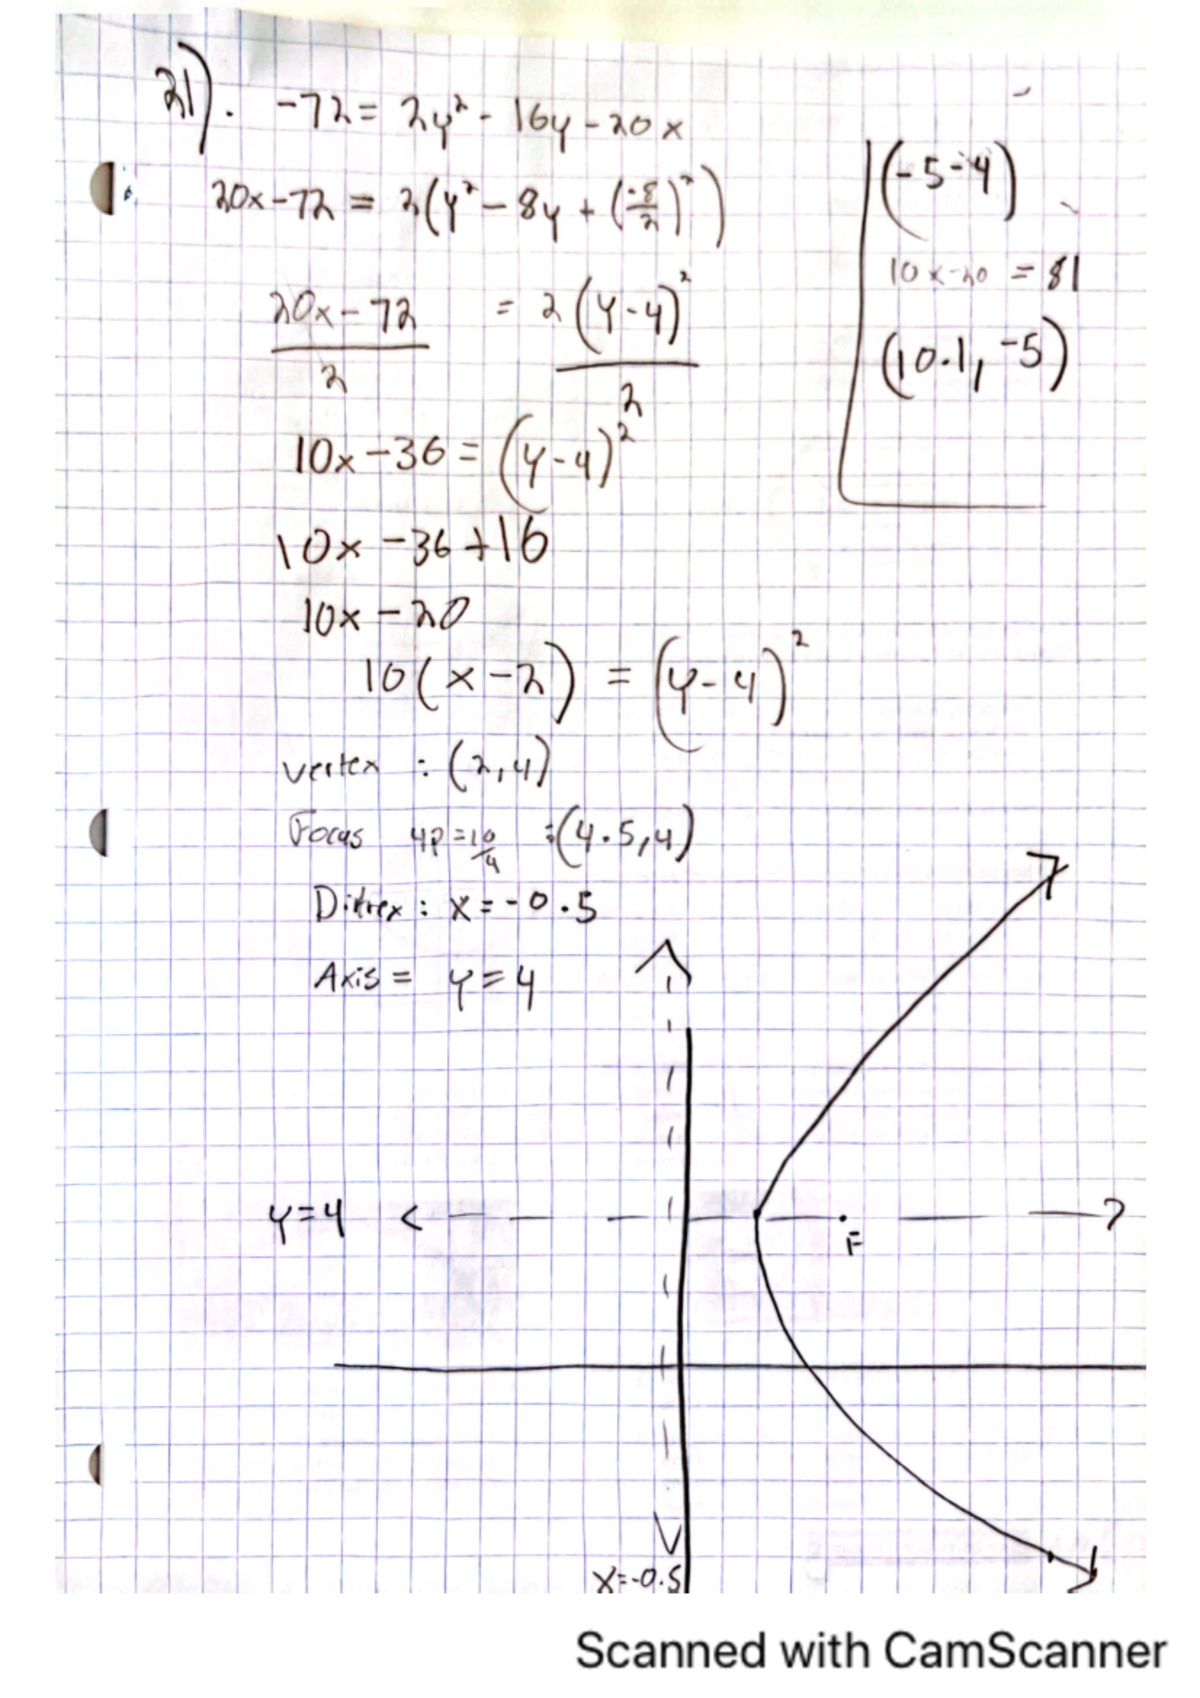 21). -72 = 2y² - 16y - 20x
20x-72 = 2(y² - 8y + (-8/2)²)
20x-72/2 = 2(y-4)²/2
10x-36 = (y-4)²
10x-36+16
10x-20
10(x-2) = (y-4)²
vertex : (2,4)
Focus 4p=10/4 :(4.5,4)
Ditrex : x=-0.5
Axis = y=4
(-5-4)
10x-20 = 81
(10.1, -5)
y=4
F
x=-0.5
Scanned with CamScanner